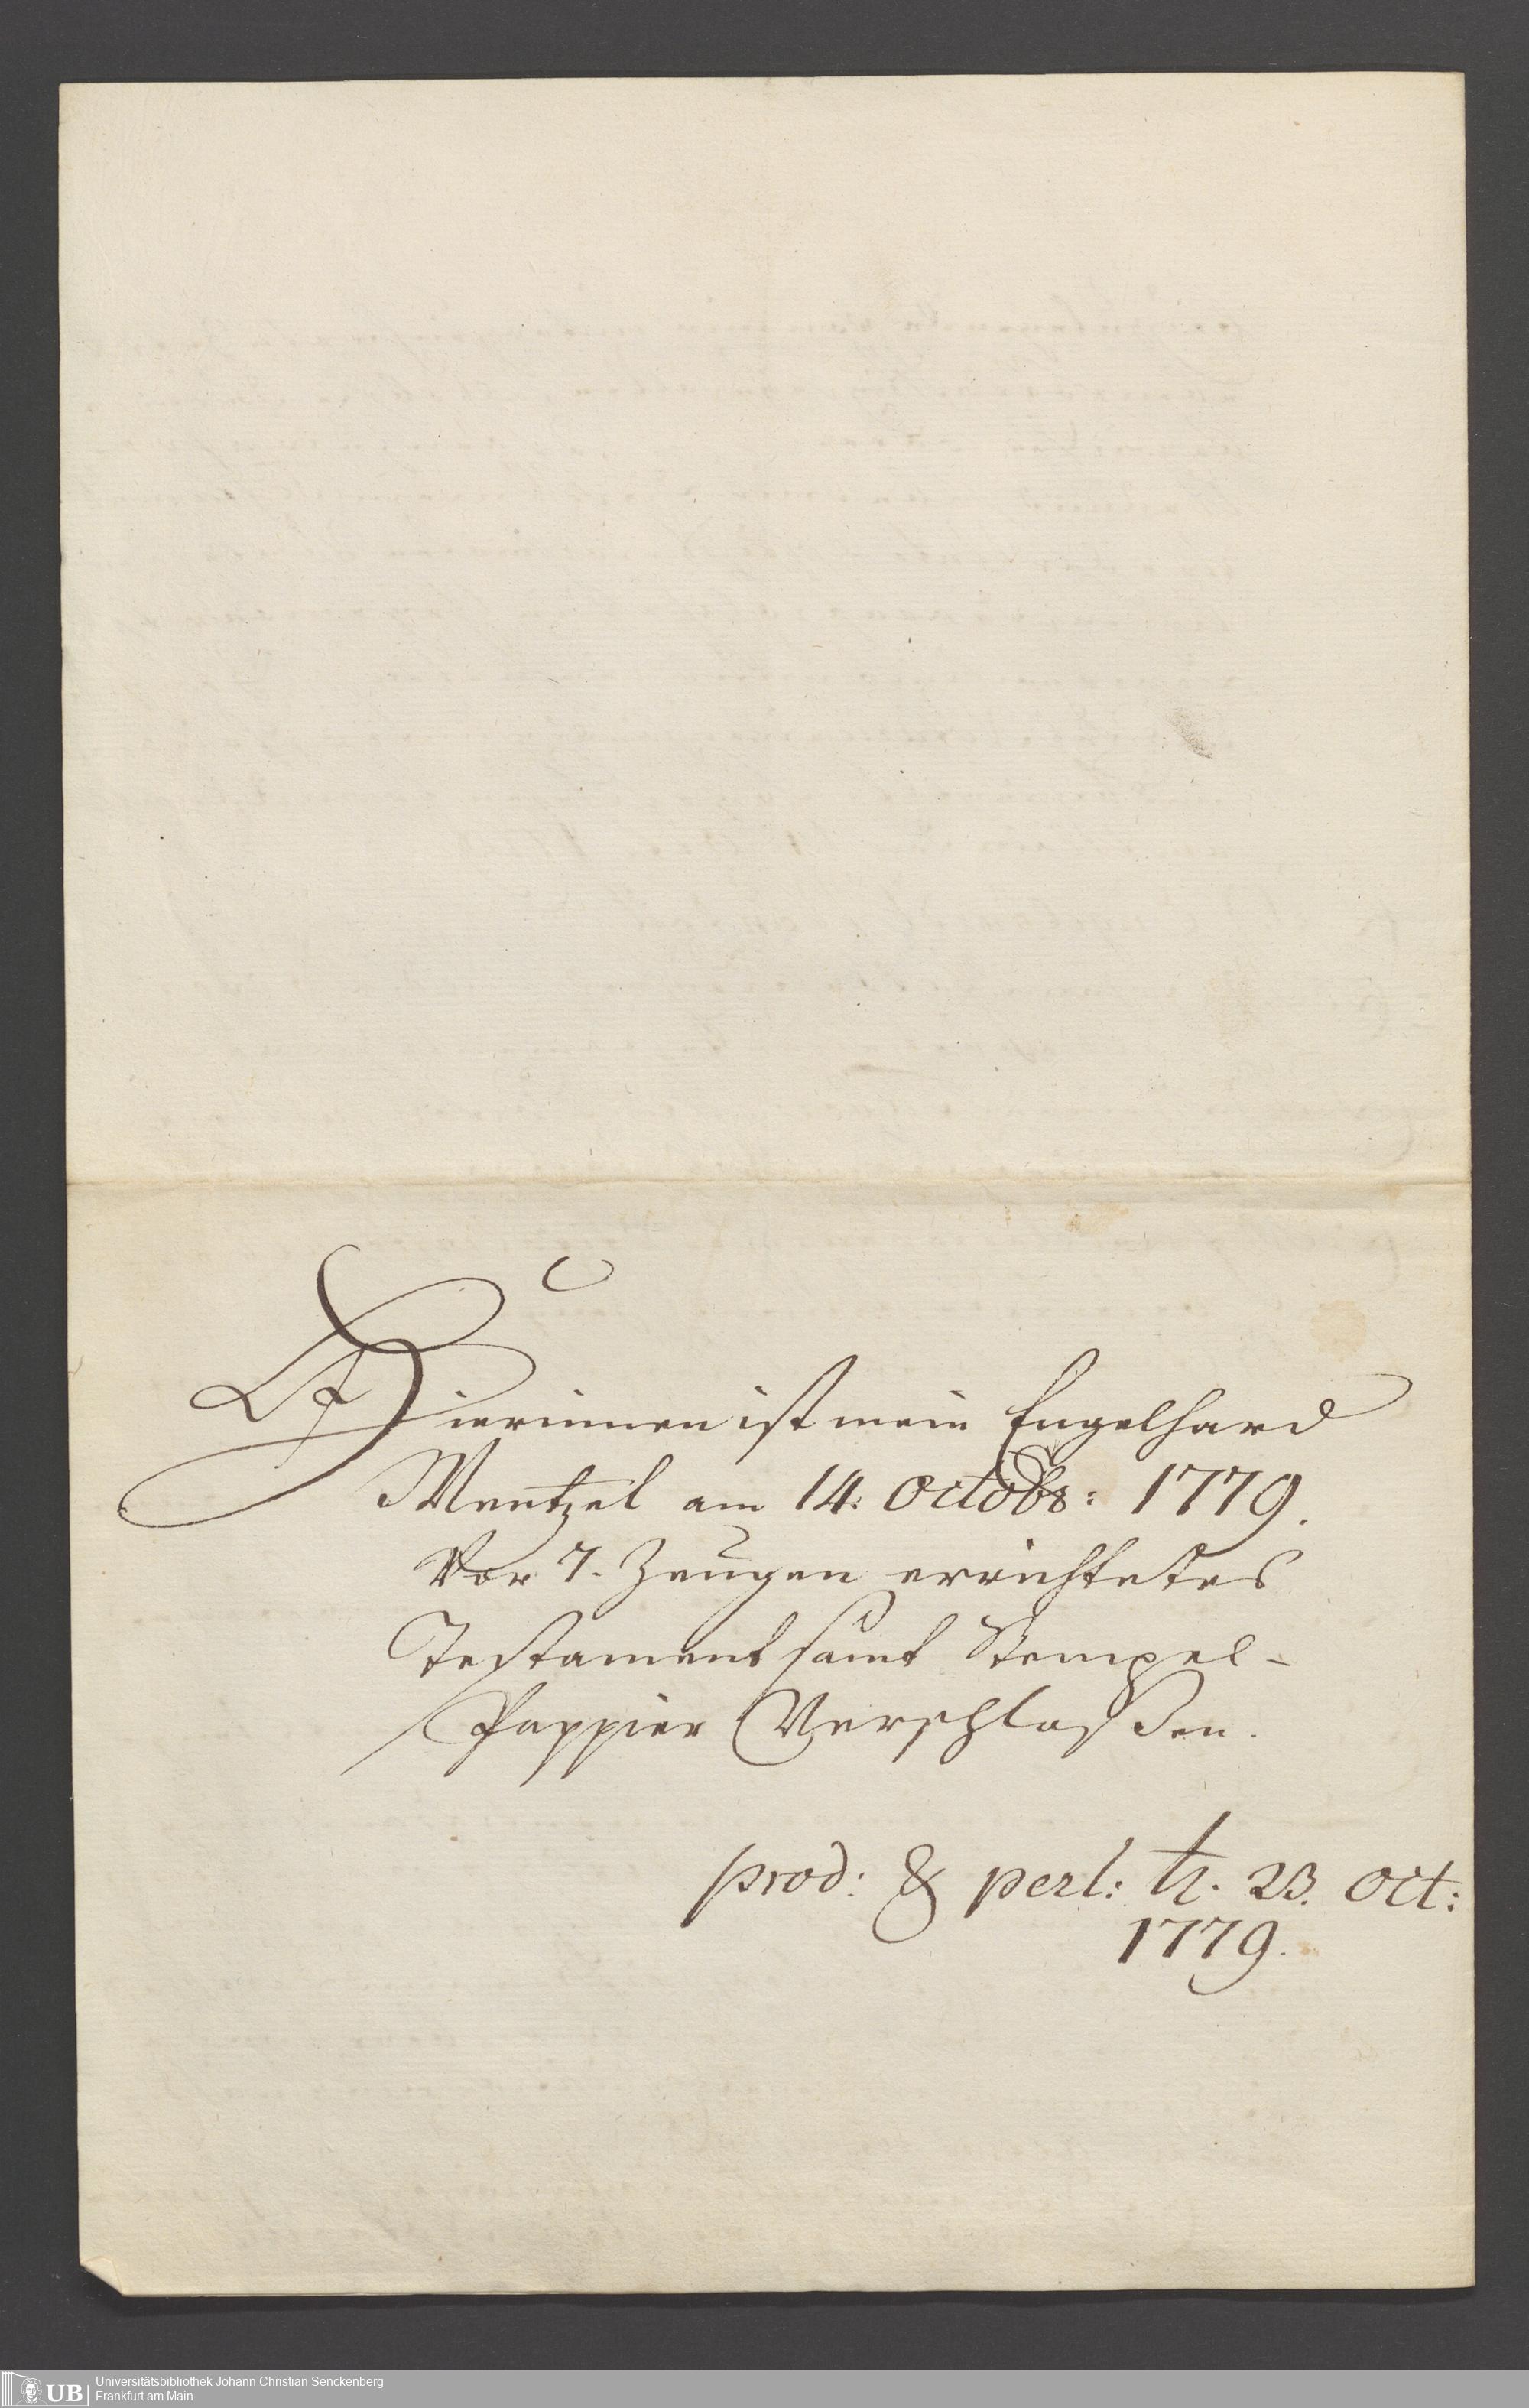 Hierinnen ist mein Engelhard
Mentzel am 14. Octobr: 1779.
Vor 7. Zeugen errichtetes
Testament samt Stempel-
Pappier Verschlossen.
prod: & perl: 23. Oct:
1779.
UB
Universitätsbibliothek Johann Christian Senckenberg
Frankfurt am Main